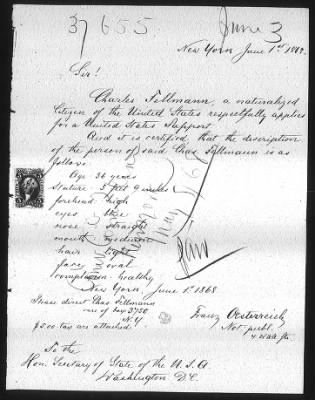 37655
June 3
New York June 1st 1868.
Sir!
Charles Tillmann, a naturalized
Citizen of the United States respectfully applies
for a United States Passport.
And it is certified that the description
of the person of said Chas. Tillmann is as
follows.
Age 36 years
Stature 5 feet 9 inches
forehead high
eyes blue
nose straight
mouth medium
hair light
face oval
complexion healthy
New York June 1st 1868
Please direct Chas Tillmann
care of box 3750
N.Y.
$5.00 tax are attached!
Franz Oesterreich
Not. publ.
4 Wall St.
To the
Hon. Secretary of State of the U.S.A
Washington D.C.